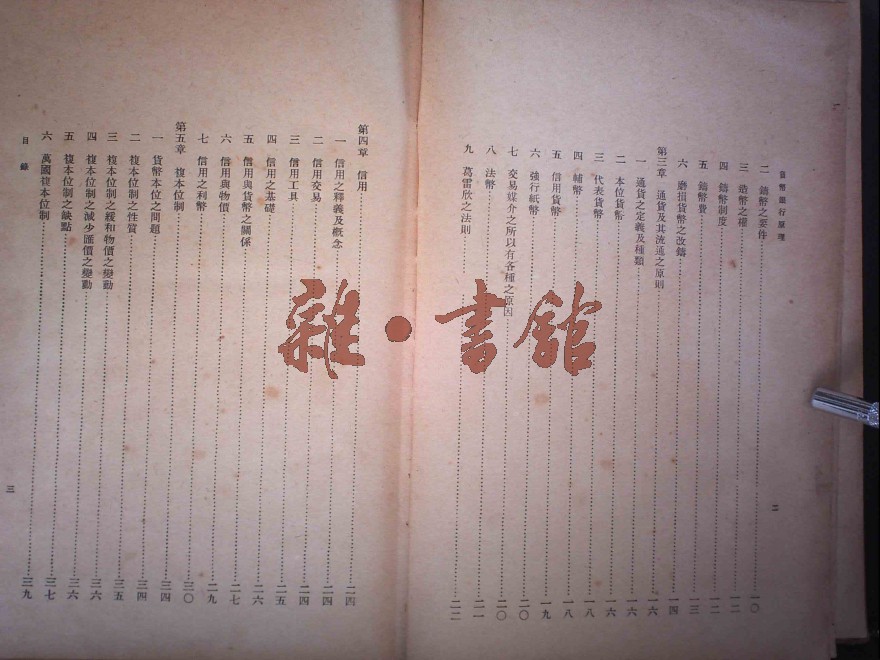 貨幣銀行原理
二 鑄幣之要件 一〇
三 造幣之權 一二
四 鑄幣制度 一二
五 鑄幣費 一三
六 磨損貨幣之改鑄 一四
第三章 通貨及其流通之原則 一六
一 通貨之定義及種類 一六
二 本位貨幣 一六
三 代表貨幣 一八
四 輔幣 一八
五 信用貨幣 一九
六 強行紙幣 二〇
七 交易媒介之所以有各種之原因 二〇
八 法幣 二一
九 葛雷欣之法則 二二
二
第四章 信用 二四
一 信用之釋義及概念 二四
二 信用交易 二四
三 信用工具 二五
四 信用之基礎 二六
五 信用與貨幣之關係 二七
六 信用與物價 二七
七 信用之利弊 二九
第五章 複本位制 三〇
一 貨幣本位之問題 三四
二 複本位制之性質 三四
三 複本位制之緩和物價之變動 三五
四 複本位制之減少匯價之變動 三六
五 複本位制之缺點 三六
六 萬國複本位制 三七
三九
目錄
三
雜·書館